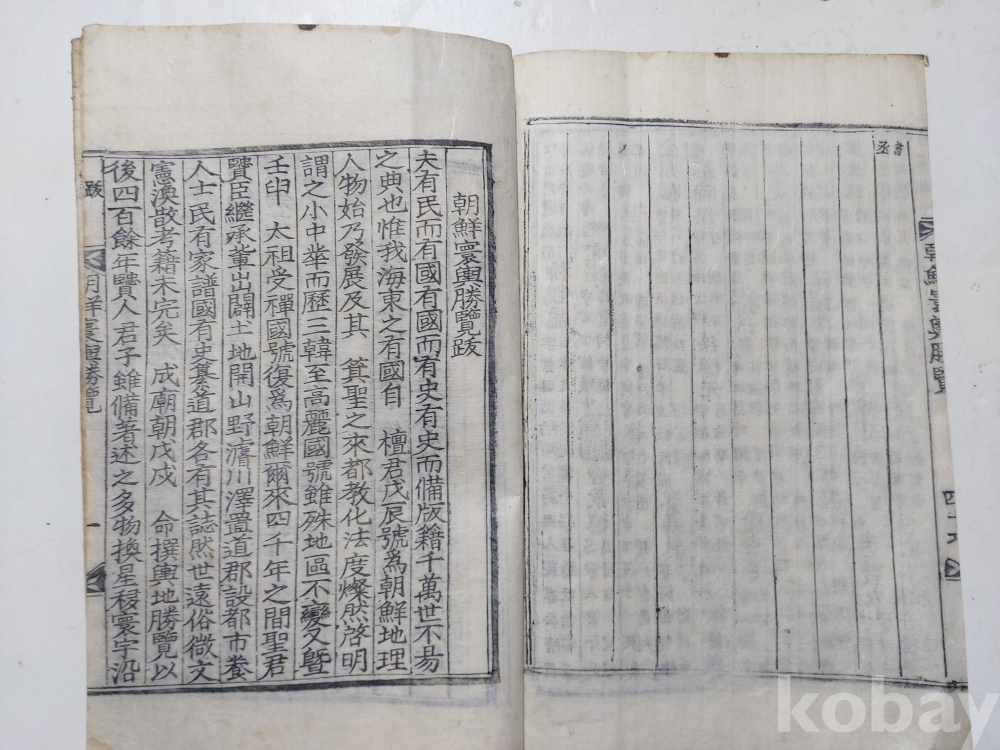 朝鮮寰輿勝覽
四十六
朝鮮寰輿勝覽跋
夫有民而有國有國而有史有史而備版籍千萬世不易
之典也惟我海東之有國自 檀君戊辰號爲朝鮮地理
人物始乃發展及其 箕聖之來都敎化法度燦然啓明
謂之小中華而歷三韓至高麗國號雖殊地區不變又曁
壬申 太祖受禪國號復爲朝鮮爾來四千年之間聖君
賢臣繼承輩出闢土地開山野濬川澤置道郡設都市養
人士民有家譜國有史纂道郡各有其誌然世遠俗微文
憲渙散考籍未完矣 成廟朝戊戌 命撰輿地勝覽以
後四百餘年賢人君子雖備著述之多物換星移寰宇沿
跋
寰輿勝覽
一
kobay